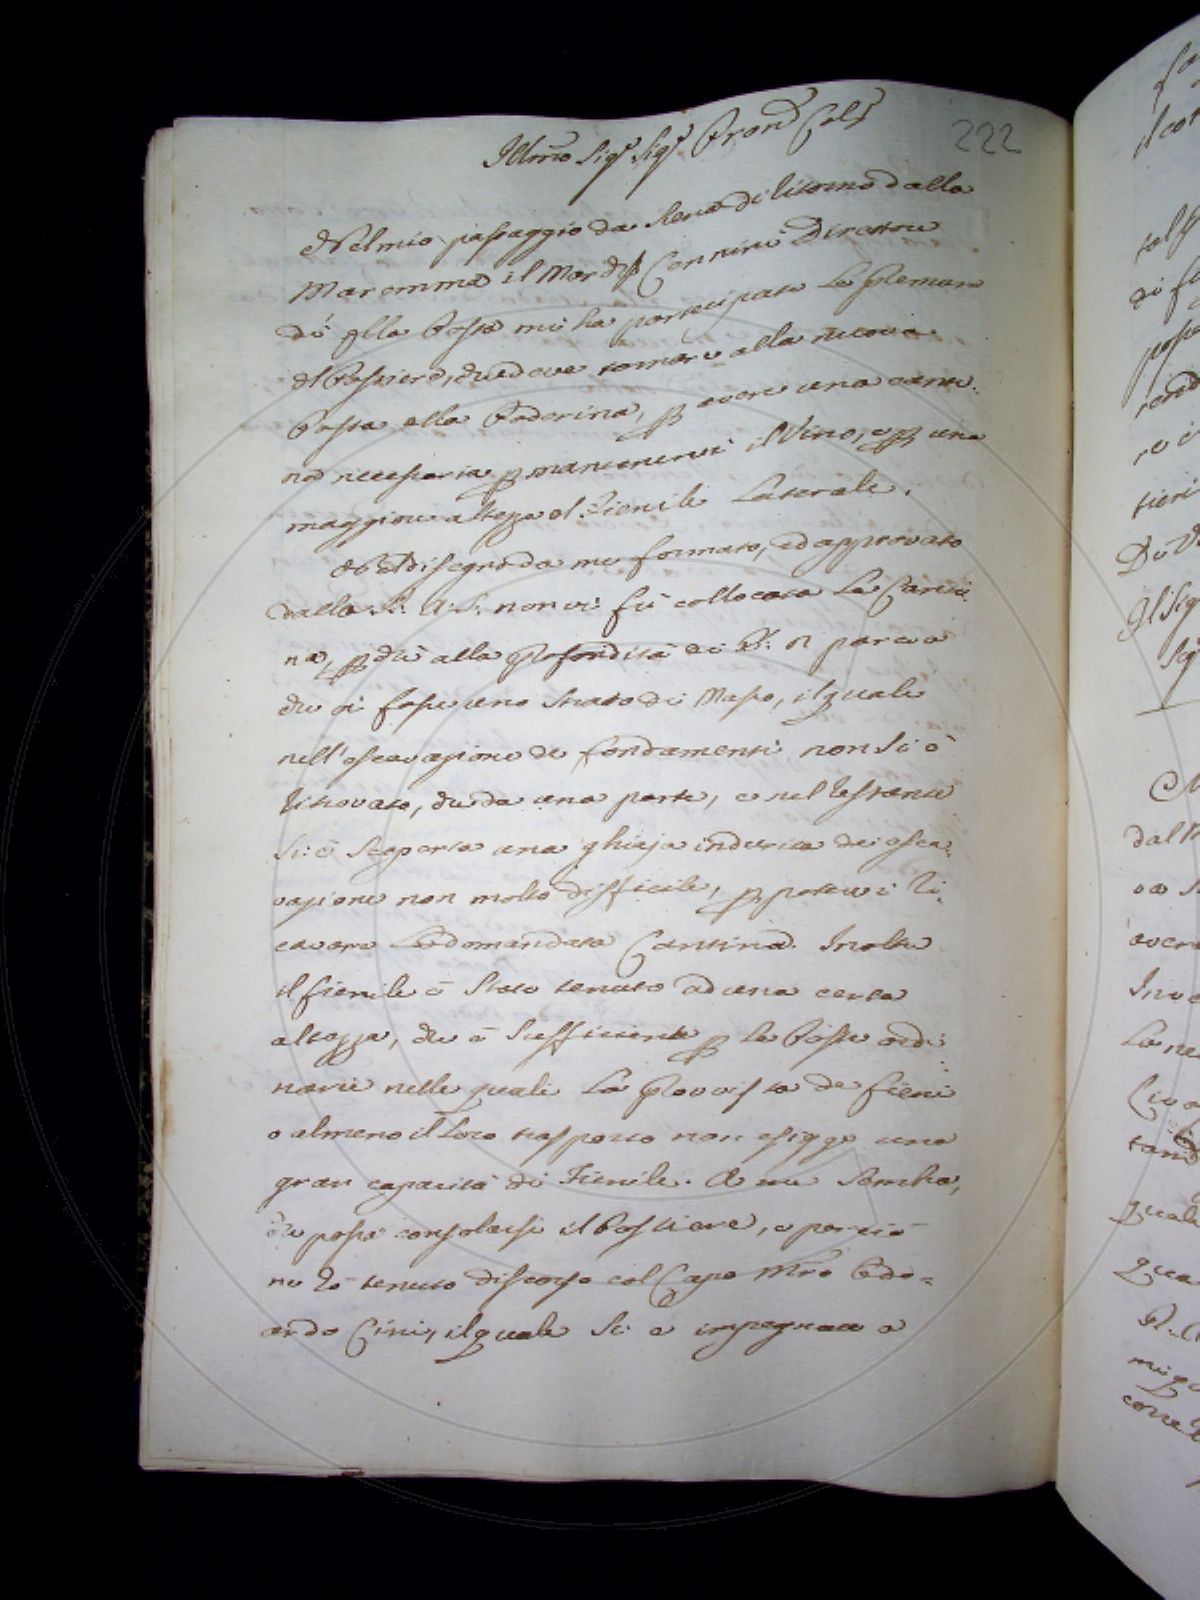 222
Illmo Sigre Sigre Pron Colmo
Nel mio passaggio da Siena di ritorno dalla
Maremma il Mar dse Cennini Direttore
di qlla Posta mi ha partecipate le Premure
del Postiere, che deve tornare alla nuova
Posta alla Poderina, p avere una canti-
na necessaria p mantenervi il Vino, e p una
maggiore altezza del Fienile Laterale.
Nel disegno da me formato, ed approvato
dalla S: A: S: non vi fù collocata la Canti-
na, p che alla profondità di B: 2 pareva
che vi fosse uno strato di Masso, il quale
nell'escavazione de fondamenti non si è
ritrovato, che da una parte, e nel restante
si è scoperta una ghiaja indurita di esca-
vazione non molto difficile, p potervi ri-
cavare la domandata Cantina. Inoltre
il fienile è stato tenuto ad una certa
altezza, che è sufficiente p le Poste ordi-
narie nelle quali la provvista de fieni
o almeno il loro trasporto non esigge una
gran capacità di Fienile. A me sembra,
che possa consolarsi il Postiere, e perciò
ne hò tenuto discorso col Capo Mro Edo-
ardo Cini, il quale si è impegnato a